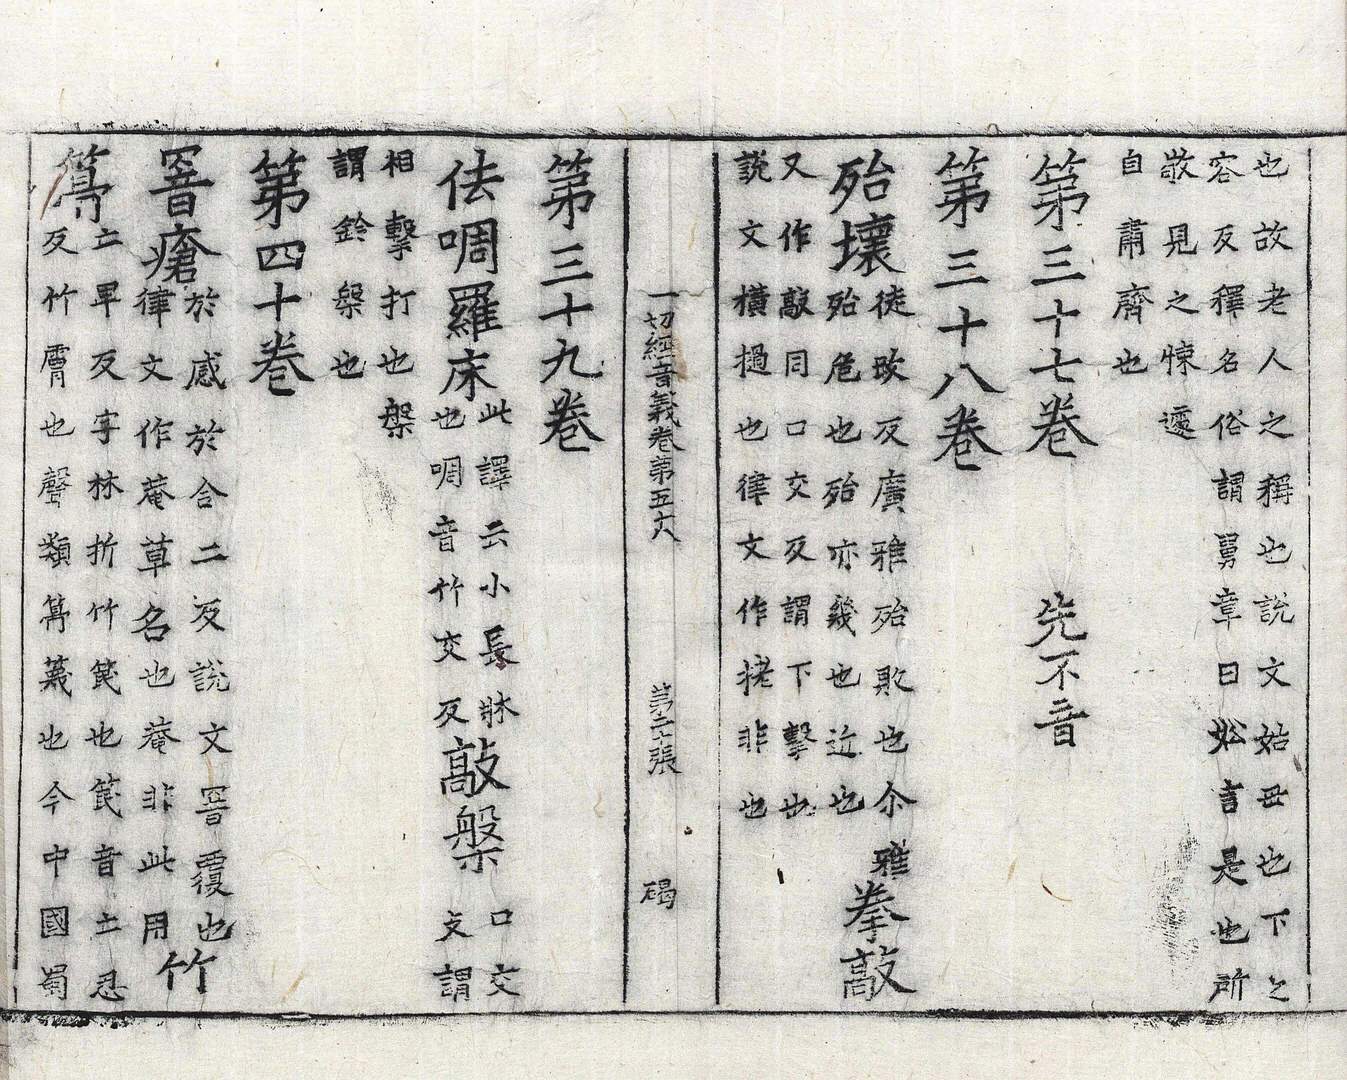 也故老人之稱也說文姑母也下之
容反釋名俗謂舅章曰妐言是也所
敬見之悚遽
自肅齊也
第三十七卷　先不音
第三十八卷
殆壞
徒改反廣雅殆敗也尒雅
殆危也殆亦幾也近也
拳敲
又作敲同口交反謂下擊也
說文橫撾也律文作拷非也
一切經音義卷第五十八　第二十張　碣
第三十九卷
佉啁羅床
此譯云小長牀
也啁音竹交反
敲槃
口交
反謂
相擊打也槃
謂鈴槃也
第四十卷
罯瘡
於感於合二反說文罯覆也
律文作菴草名也菴非此用
竹
篿
士卑反字林折竹篾也篾音亡忍
反竹膚也聲類篿篾也今中國蜀